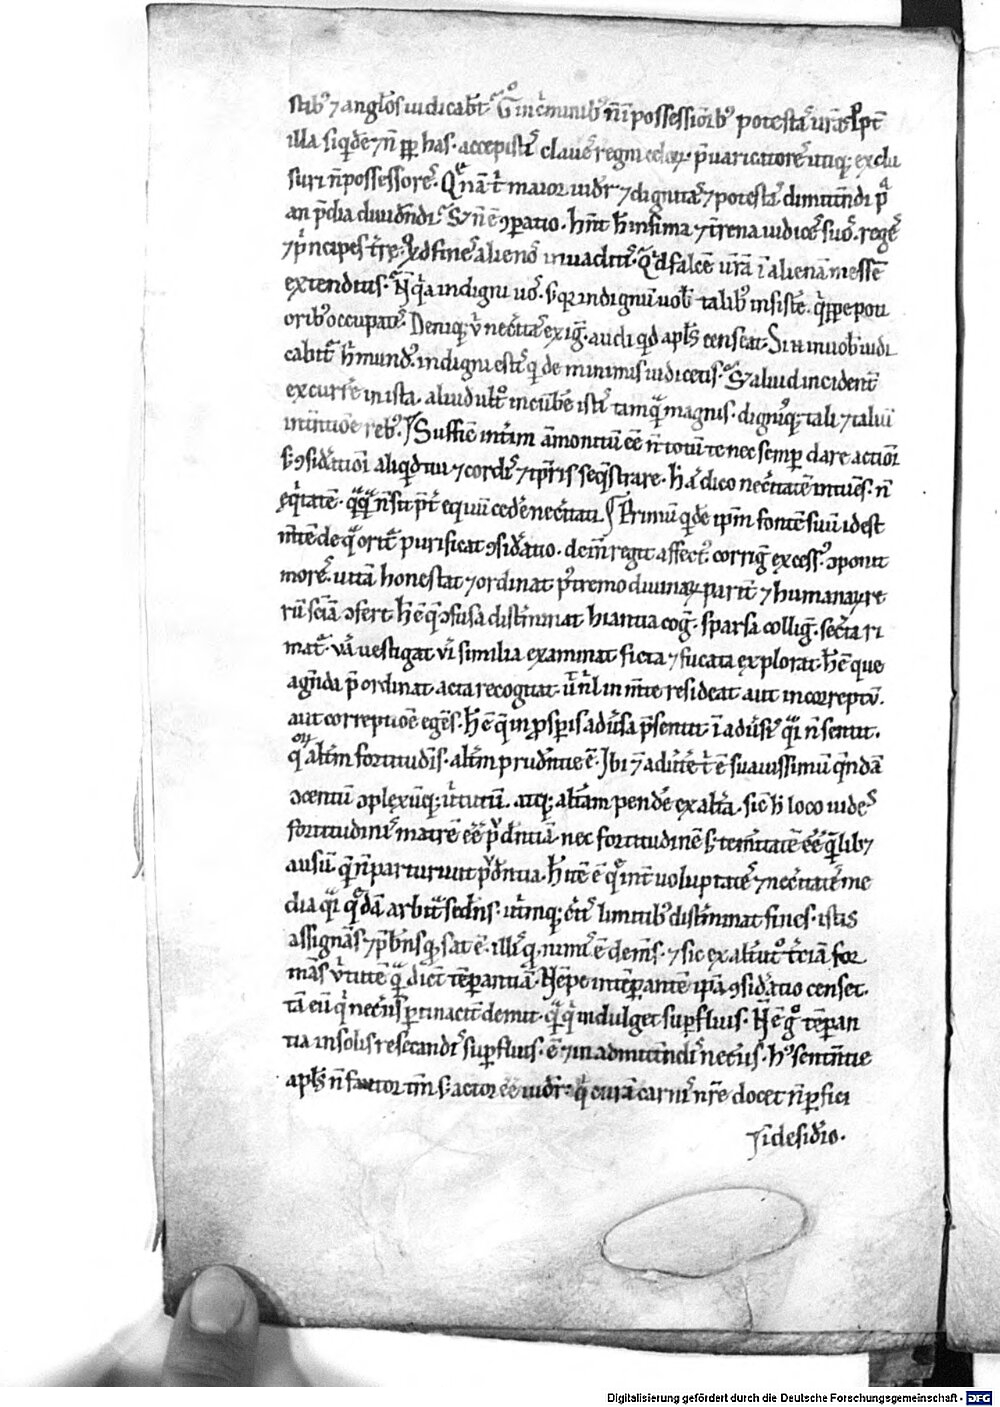 stib⁹ ⁊ anglos iudicabt̄. G° in c̄minib⁹ n̄ ī possessiōib⁹ potesta᷒ ur̄a. ꝓpt̄
illa siqͥdē ⁊ n̄ ꝓp has. accepistꝭ claue᷒ regni celoꝝ. p̄uaricatore᷒ utiqꝫ exclu
suri n̄ possessore᷒. Quenā t̄ maior uid̄r ⁊ dignita᷒ ⁊ potesta᷒ dimittndi pͨ
an p̄dia diuidn̄di. Sꝫ n̄ ē ꝯparatio. hn̄t h̄ infima ⁊ tͬrena iudice᷒ suo᷒. rege᷒
⁊ pͥncipes tͬre. Qͥd fine᷒ alieno᷒ inuaditꝭ. Qͥd falcē ur̄ā ī alienā messē
extenditis. N̄ qͥa indigni uo᷒. sꝫ qꝛ indignū uob̄ talib⁹ insistē. qͥppe poti
orib⁹ occupatꝭ. Deniqꝫ ū nec̄ita᷒ exigͭ. audi qͥd apl̄s censeat. Si .n. in uob̄ iudi
cabitͬ h̄ mund⁹. indigni estꝭ qͥ de minimis iudicetis. Sꝫ aliud incident̄
excurrē in ista. aliud ult̊ incūbē istꝭ tamqͣ magnis. dignisqꝫ tali ⁊ taliū
intn̄tiōe reb⁹. Suffic̄ int̄im āmonitū eē n̄ totū te nec semꝑ dare actioī
sꝫ ꝯsidͬatioī aliqͥd tui ⁊ cordꝭ ⁊ tp̄ris seqͣstrare. h̄ aͧ dico nec̄itatē intuēs. n̄
eqͥtatē. qͣqͣ n̄ sit p̄t equū cedē nec̄itati. Primū qͥdē ip̄m fontē suū id est
m̄tē de qͣ oritͬ purificat ꝯsidͬatio. deīn regit affect⁹. corrigͭ excess⁹. ꝯponit
more᷒. uitā honestat ⁊ ordinat. p᷒tremo diuinaꝝ parit̄ ⁊ humanaꝝ re
rū sciā ꝯfert. h̄ ē qͤ ꝯfusa distm̄inat. hiantia cogͭ. sparsa colligͭ. sec̄ta ri
matͬ. uͣ uestigat. uͥ similia examinat. ficta ⁊ fucata explorat. h̄ ē que
agn̄da p̄ordinat. acta recogitat. ut nl̄ in m̄te resideat aut incorreptū.
aut correptiōe egēs. h̄ ē qͤ in ꝓsꝑis aduͬsa p̄sentit. ī aduͬsiꝭ qͣi n̄ sentit.
qͦꝝ alt̄m fortitudīs. alt̄m prudn̄tie ē. Ibi ⁊ aduͬte t̄ ē suauissimū qn̄dā
ꝯcentū ꝯplexūqꝫ uͥtutū. atqꝫ alt̄am pendē ex alt̄a. sic h̄ loco uide᷒
fortitudinꝭ matrē eē p̄dn̄tiā. nec fortitudinē sꝫ temͬitatē eē qͣlib⁊
ausū quē n̄ parturiuit p̄dn̄tia. h̄ itē ē qͤ int̄ uoluptate᷒ ⁊ nec̄itate᷒ me
dia qͣi qͣdā arbitͣ sedn̄s. ut̄imqꝫ c̄tꝭ limitib⁹ distm̄inat fines. istis
assignās ⁊ p̄bn̄s qͦ sat ē. illis qͦ nimiū ē demēs. ⁊ sic ex alt̄utͦ tͬciā for
mās uͥtutē qͣ dic̄t tēꝑantiā. Nēpe intēꝑantē ip̄a ꝯsidͬatio censet.
tā eū qͥ necͬiis ꝑtinacit̄ demit. qͣ qͥ indulget suꝑfluis. N̄ ē g° tēꝑan
tia in solis resecandꝭ suꝑfluis. ē ⁊ in admittendꝭ necͬiis. h⁹ sentn̄tie
apl̄s n̄ fautor tm̄ sꝫ actor eē uid̄r. qͥ curā carnꝭ nr̄e docet n̄ ꝑfici
ī desidͬio.
Digitalisierung gefördert durch die Deutsche Forschungsgemeinschaft - DFG